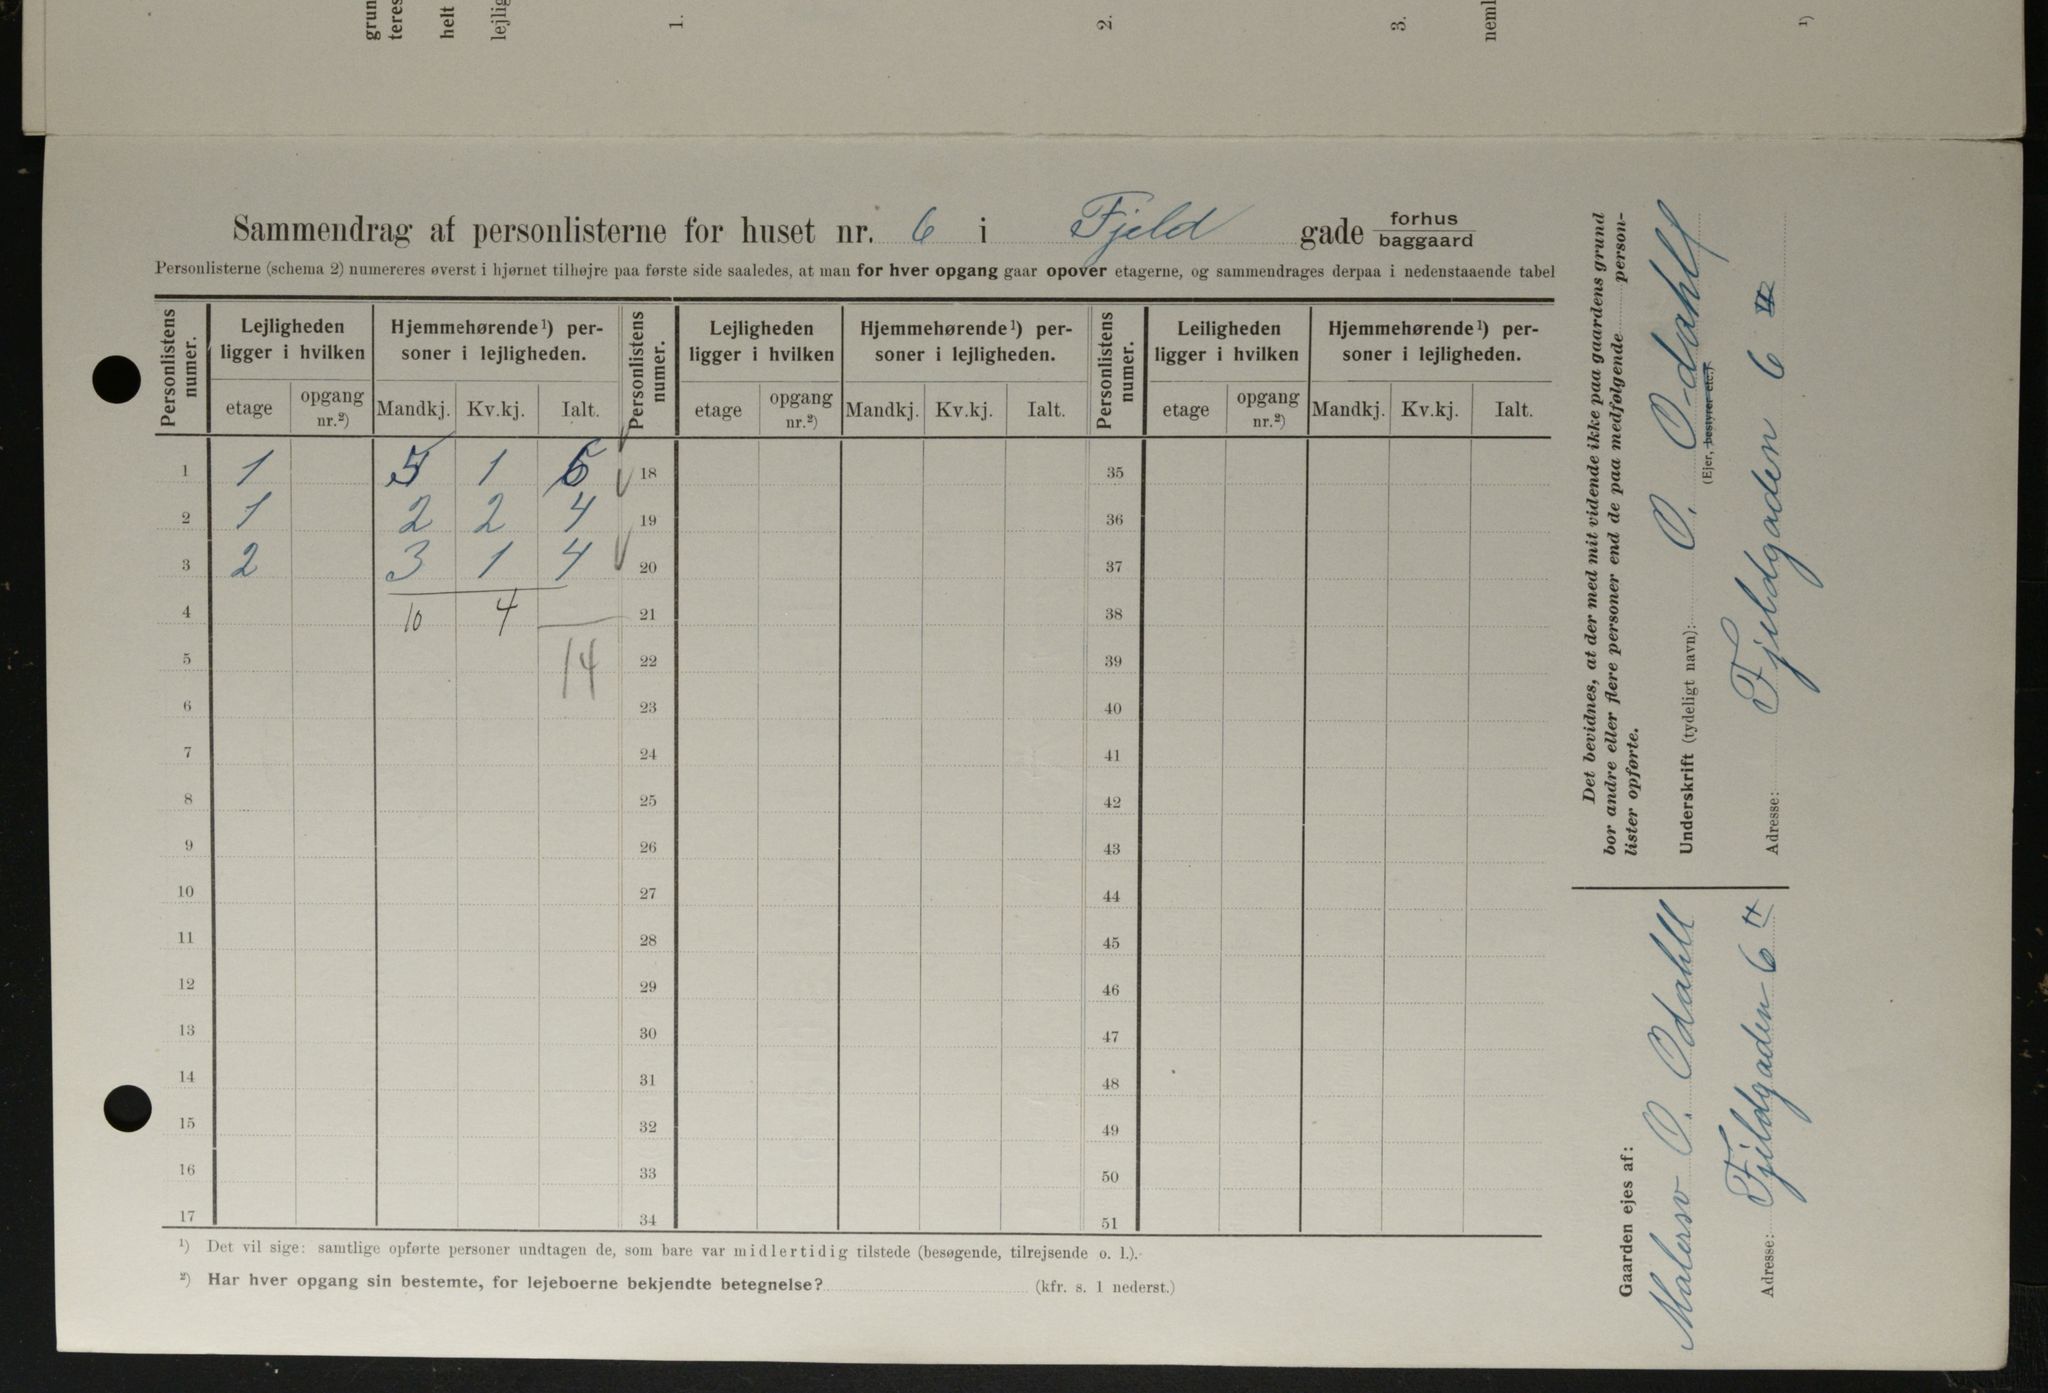 grun
teres
helt
lejlig
1.
2.
3.
neml
1)
Sammendrag af personlisterne for huset nr. 6 i Fjeld gade forhus / baggaard
Personlisterne (schema 2) numereres øverst i hjørnet tilhøjre paa første side saaledes, at man for hver opgang gaar opover etagerne, og sammendrages derpaa i nedenstaaende tabel
Personlistens numer. Lejligheden ligger i hvilken Hjemmehørende 1) personer i lejligheden. Personlistens numer. Lejligheden ligger i hvilken Hjemmehørende 1) personer i lejligheden. Personlistens numer. Leiligheden ligger i hvilken Hjemmehørende 1) personer i lejligheden.
etage opgang nr.2) Mandkj. Kv.kj. Ialt. etage opgang nr.2) Mandkj. Kv.kj. Ialt. etage opgang nr.2) Mandkj. Kv.kj. Ialt.
1 1 5 1 6 18 35
2 1 2 2 4 19 36
3 2 3 1 4 20 37
4 10 4 21 38
5 14 22 39
6 23 40
7 24 41
8 25 42
9 26 43
10 27 44
11 28 45
12 29 46
13 30 47
14 31 48
15 32 49
16 33 50
17 34 51
1) Det vil sige: samtlige opførte personer undtagen de, som bare var midlertidig tilstede (besøgende, tilrejsende o. l.).
2) Har hver opgang sin bestemte, for lejeboerne bekjendte betegnelse? (kfr. s. 1 nederst.)
Det bevidnes, at der med mit vidende ikke paa gaardens grund
bor andre eller flere personer end de paa medfølgende person-
lister opførte.
Underskrift (tydeligt navn): O. Odahll
(Ejer, bestyrer etc.)
Adresse: Fjeldgaden 6 II
Gaarden ejes af:
Malersv O. Odahll
Adresse: Fjeldgaden 6 II